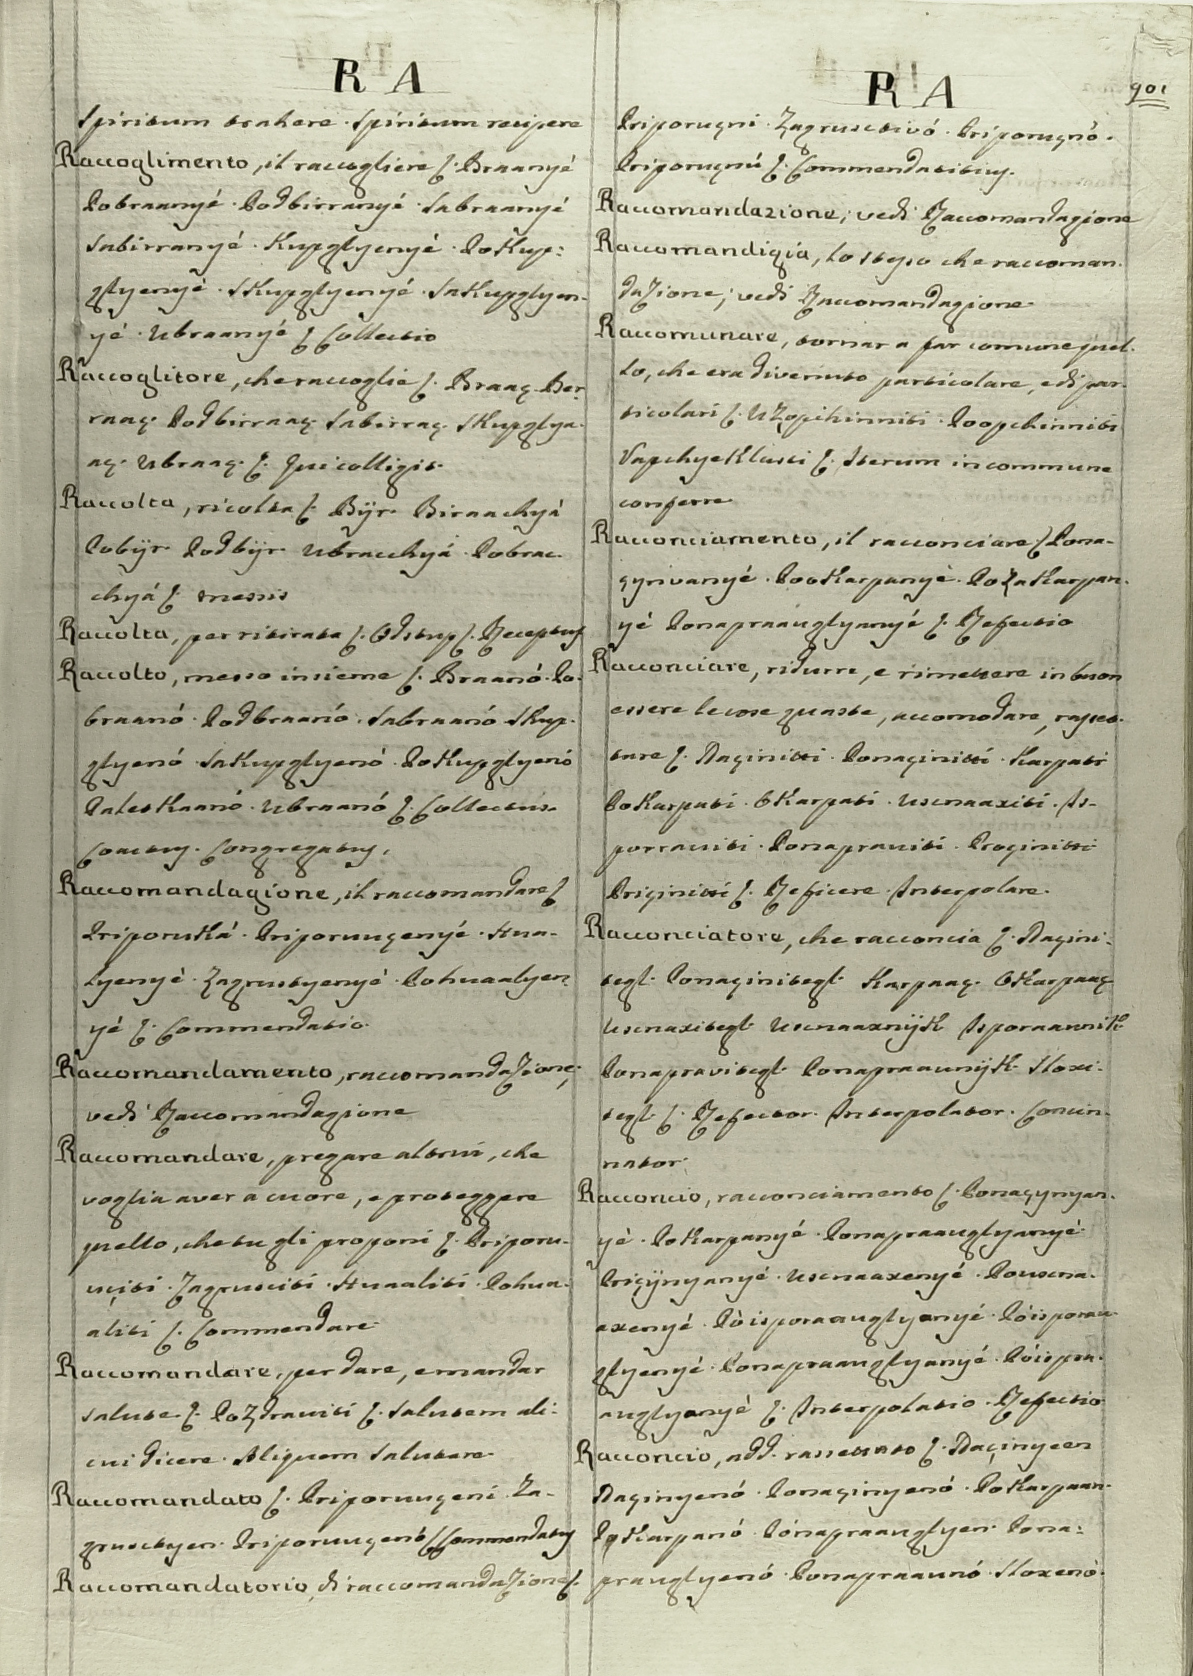 R A
Spiritum trahere. Spiritum recipere
Raccoglimento, il raccogliere ſ. Braanyé
Pobraanyé. Podbirranyé. Sabraanyé
Sabirranyé. Kupglyenyé. Pokup:
glyenyé. Skupglyenyé. Sakupglyen-
yé. Ubraanyé ſ. Collectio
Raccoglitore, che raccoglie ſ. Braaç. Ber-
raaç. Podbirraaç. Sabirraç. Skupglya-
aç. Ubraaç. ſ. Qui colligit.
Raccolta, ricolta ſ. Bijr. Biraachyá
Pobijr. Podbijr. Ubracchyá. Pobrac-
chyá ſ. messis
Raccolta, per ritirata ſ. Odstup ſ. Receptus
Raccolto, messo insieme ſ. Braanó. Po-
braanó. Podbraanó. Sabraanó. Skup-
glyenó. Sakupglyenó. Pokupglyenó
Paletkaanó. Ubraanó ſ. Collectus.
Coactus. Congregatus.
Raccomandagione, il raccomandare ſ.
Priporuká. Priporuuçenyé. Hua-
lyenyé. Zagrustyenyé. Pohuaalyen-
yé ſ. Commendatio.
Raccomandamento, raccomandazione;
vedi Raccomandagione
Raccomandare, pregare altrui, che
voglia aver a cuore, e proteggere
quello, che tu gli proponi ſ. Priporu-
uçiti. Zagrusciti. Huaaliti. Pohua-
aliti ſ. Commendare.
Raccomandare, per dare, e mandar
salute ſ. Pozdraviti ſ. Salutem ali-
cui dicere. Aliquem salutare.
Raccomandato ſ. Priporuuçeni. Za-
grusctyen. Priporuuçenó ſ. Commendatus
Raccomandatorio, di raccomandazione ſ.
R A
901
Priporuçni. Zagrusctivó. Priporuçnó.
Priporuçni ſ. Commendatitius.
Raccomandazione; vedi Raccomandagione
Raccomandigia, lo stesso che raccoman-
dazione; vedi Raccomandagione.
Raccomunare, tornar a far comune quel-
lo, che era divenuto particolare, e di par-
ticolari ſ. Uzopchinniti. Poopchinniti
ſ. Iterum in commune
conferre
Racconciamento, il racconciare ſ. Pona-
çynivanyé. Pookarpanyé. Pozakarpan-
yé. Ponapraauglyanyé ſ. Refectio
Racconciare, ridurre, e rimettere in buon
essere le cose guaste, accomodare, rasset-
tare ſ. Naçinitti. Ponaçinitti. Karpati
Pokarpati. Okarpati. Uscnaaxiti. Is-
porraviti. Ponapraviti. Proçinitti
Priçinitti ſ. Reficere. Interpolare.
Racconciatore, che racconcia ſ. Naçini-
tegl. Ponaçinitegl. Karpaaç. Okarpaaç
Uscnaxitegl. Uscnaaxnijk. Isporaavnik
Ponapravitegl. Ponapraavnijk. Sloxi-
tegl. ſ. Refector. Interpolator. Concin-
nator.
Racconcio, racconciamento ſ. Ponaçynyan-
yé. Pokarpanyé. Ponapraauglyanyé
Priçijnyanyé. Uscnaaxenyé. Pouscna-
axenyé. Póisporaauglyanyé. Póisporau-
glyenyé. Ponapraauglyanyé. Póispra-
auglyanyé ſ. Interpolatio. Refectio
Racconcio, add. rassettato ſ. Naçinyeen
Naçinyenó. Ponaçinyenó. Pokarpaan.
Pokarpanó. Pónapraauglyen. Pona:
prauglyenó. Ponapraavnó. Sloxenó.